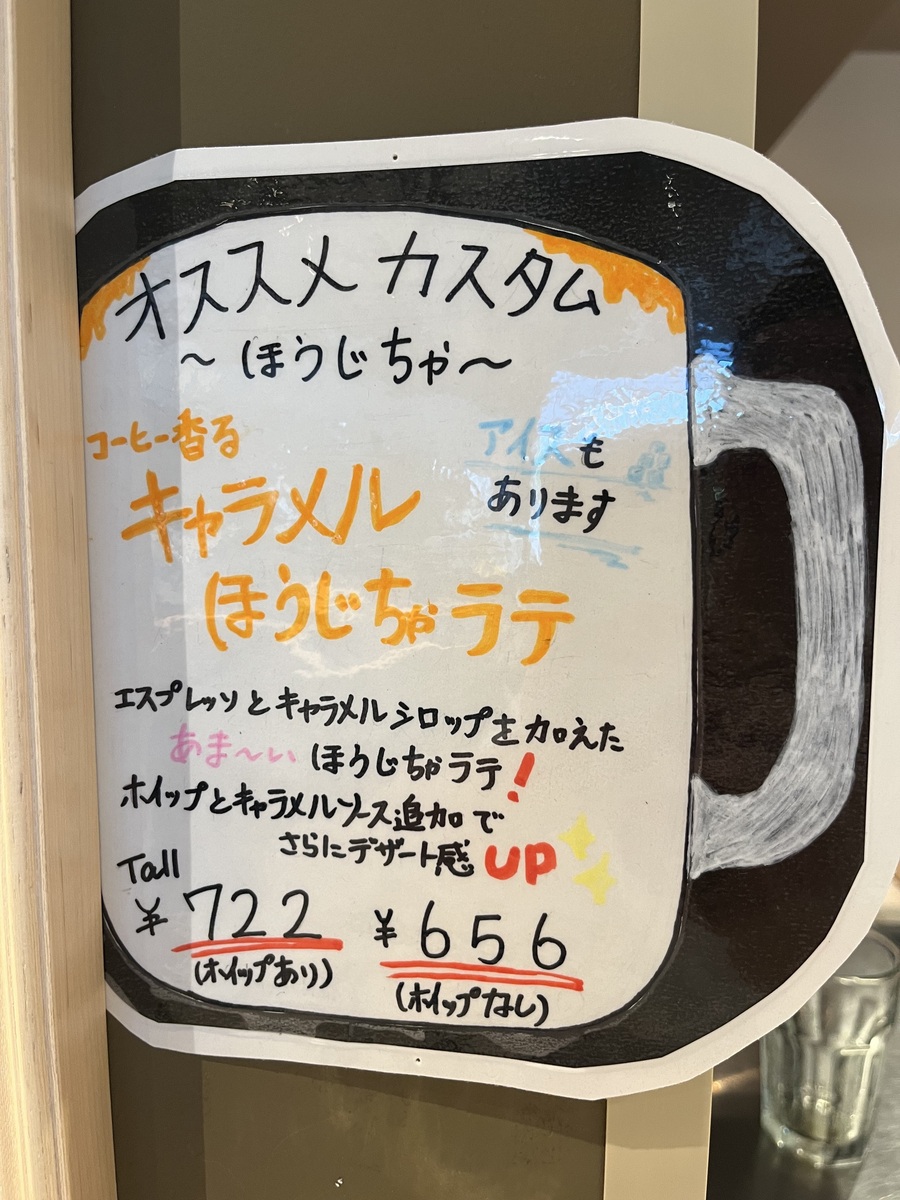 オススメ カスタム
～ ほうじちゃ～
コーヒー香る
キャラメル
ほうじちゃラテ
アイスも
あります
エスプレッソとキャラメルシロップを加えた
あま～い ほうじちゃラテ!
ホイップとキャラメルソース追加で
さらにデザート感UP
Tall
¥722
(ホイップあり)
¥656
(ホイップなし)